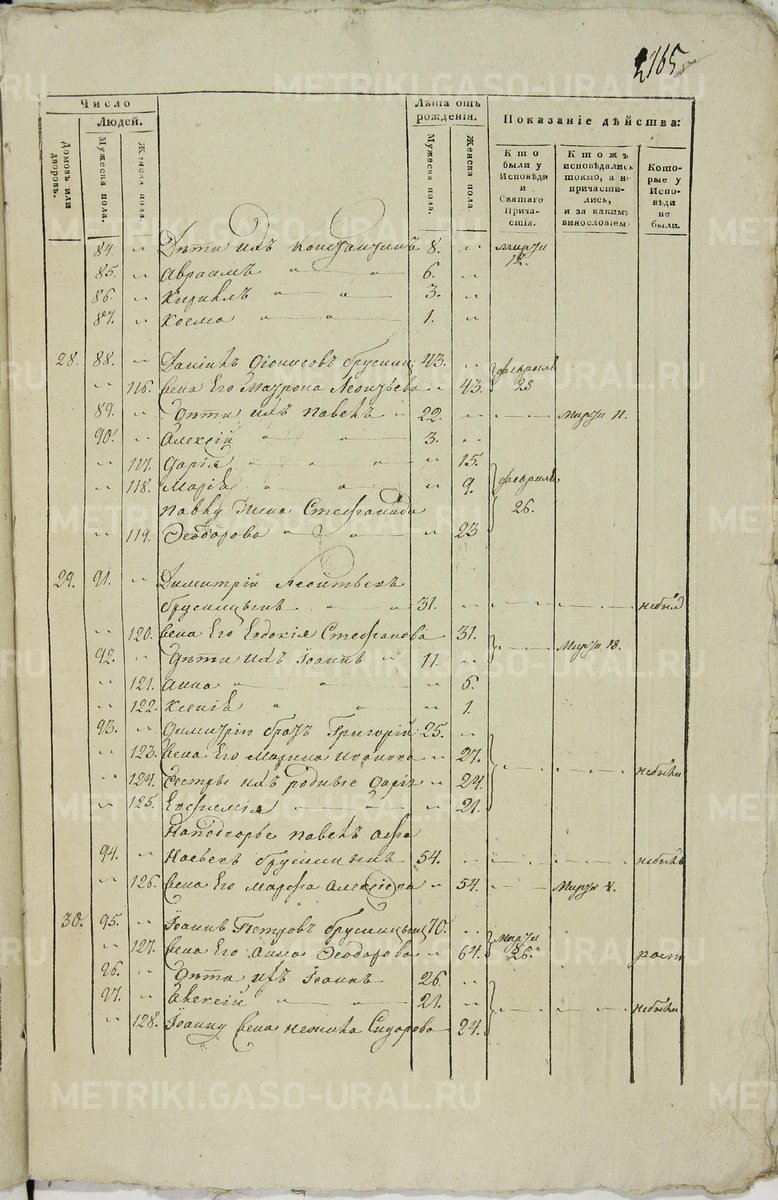 165
Число
Людей.
Лѣта отъ рожденія.
Показаніе дѣйства:
Домовъ или дворовъ.
Мужеска пола.
Женска пола.
Мужеска пола.
Женска пола.
Кто были у Исповѣди и Святаго Причастія.
Ктожъ исповѣдались токмо, а не причастились, и за какимъ винословіемъ
Которые у Исповѣди не были.
84. " Дѣти ихъ Константинъ 8. " марта
85. " Авраамъ " " 6. "
86. " Кириллъ " " 3. "
87. " Косма " " 1. "
28. 88. " Даніилъ Діонисовъ Брусниц: 43. " февраля
" 116. жена Его Матрона Леонтьева " 43. 28
89. " Дѣти ихъ Павелъ " 22. " Марта 11.
90. " Алексій " " 3. "
" 117. Дарія " " " 15.
" 118. Марія " " " 9. февраля
Павлу жена Стефанида 26.
" 119. Ѳеодорова " " " 23
29. 91. " Димитрій Леонтьевъ
Брусницынъ " " 31. " небылъ
" 120. жена Его Евдокія Стефанова 31.
92. " Дѣти ихъ Іоаннъ " 11. " Марта 18.
" 121. Анна " " " 6.
" 122. Ксенія " " " 1.
93. " Димитрію братъ Григорій 25. "
" 123. жена Его Марина Иванова " 27.
" 124. Сестры ихъ родные Дарія " 24. небыли
" 125. Евфимія " " " 21.
Павелъ
94. " Брусницынъ 54. " небылъ
" 126. жена Его Марфа Алексіева " 54. Марта
30. 95. " Іоаннъ Петровъ Брусницынъ 70. " Марта
" 127. жена Его Анна Ѳеодорова " 64. 26.
96. " Дѣти ихъ Іоаннъ 26. "
97. " Алексій " " 21. " небыли
" 128. Іоанну жена Сидорова " 24.
METRIKI.GASO-URAL.RU